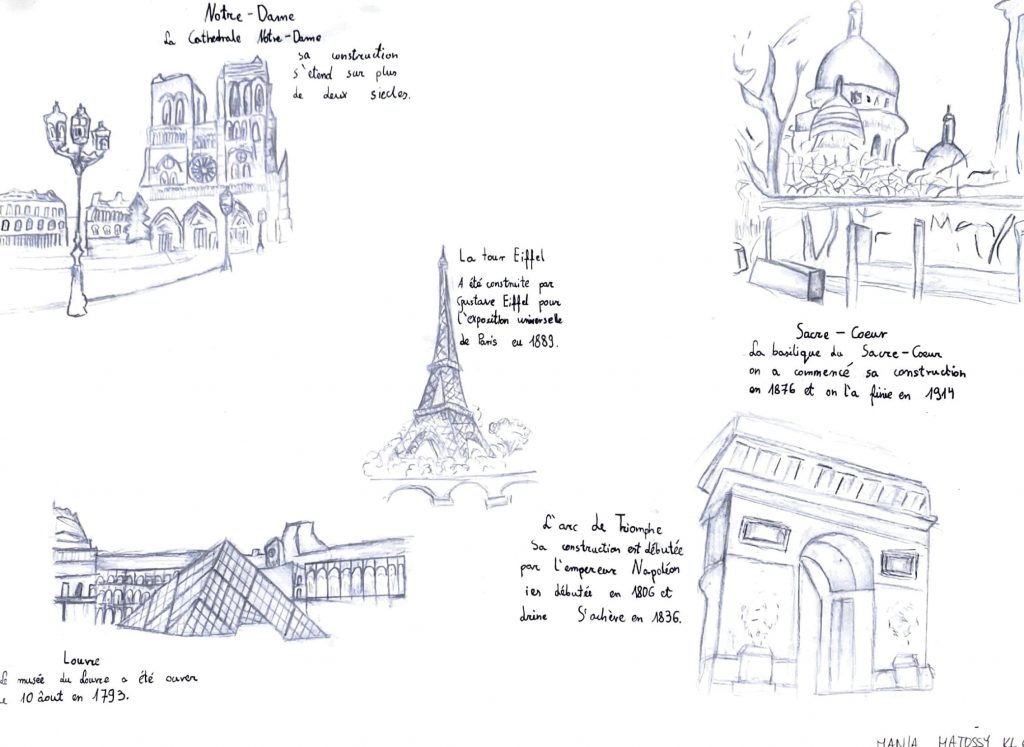 Notre-Dame
La Cathedrale Notre-Dame
sa construction
s'étend sur plus
de deux siecles.
La tour Eiffel
A été construite par
Gustave Eiffel pour
l'exposition universelle
de Paris en 1889.
Sacre-Coeur
La basilique du Sacre-Coeur
on a commencé sa construction
en 1876 et on l'a finie en 1914
L'arc de Triomphe
Sa construction est débutée
par l'empereur Napoléon
ier débutée en 1806 et
S'achève en 1836.
Louvre
musée du Louvre a été ouver
10 âout en 1793.
MANIA MATOSSY